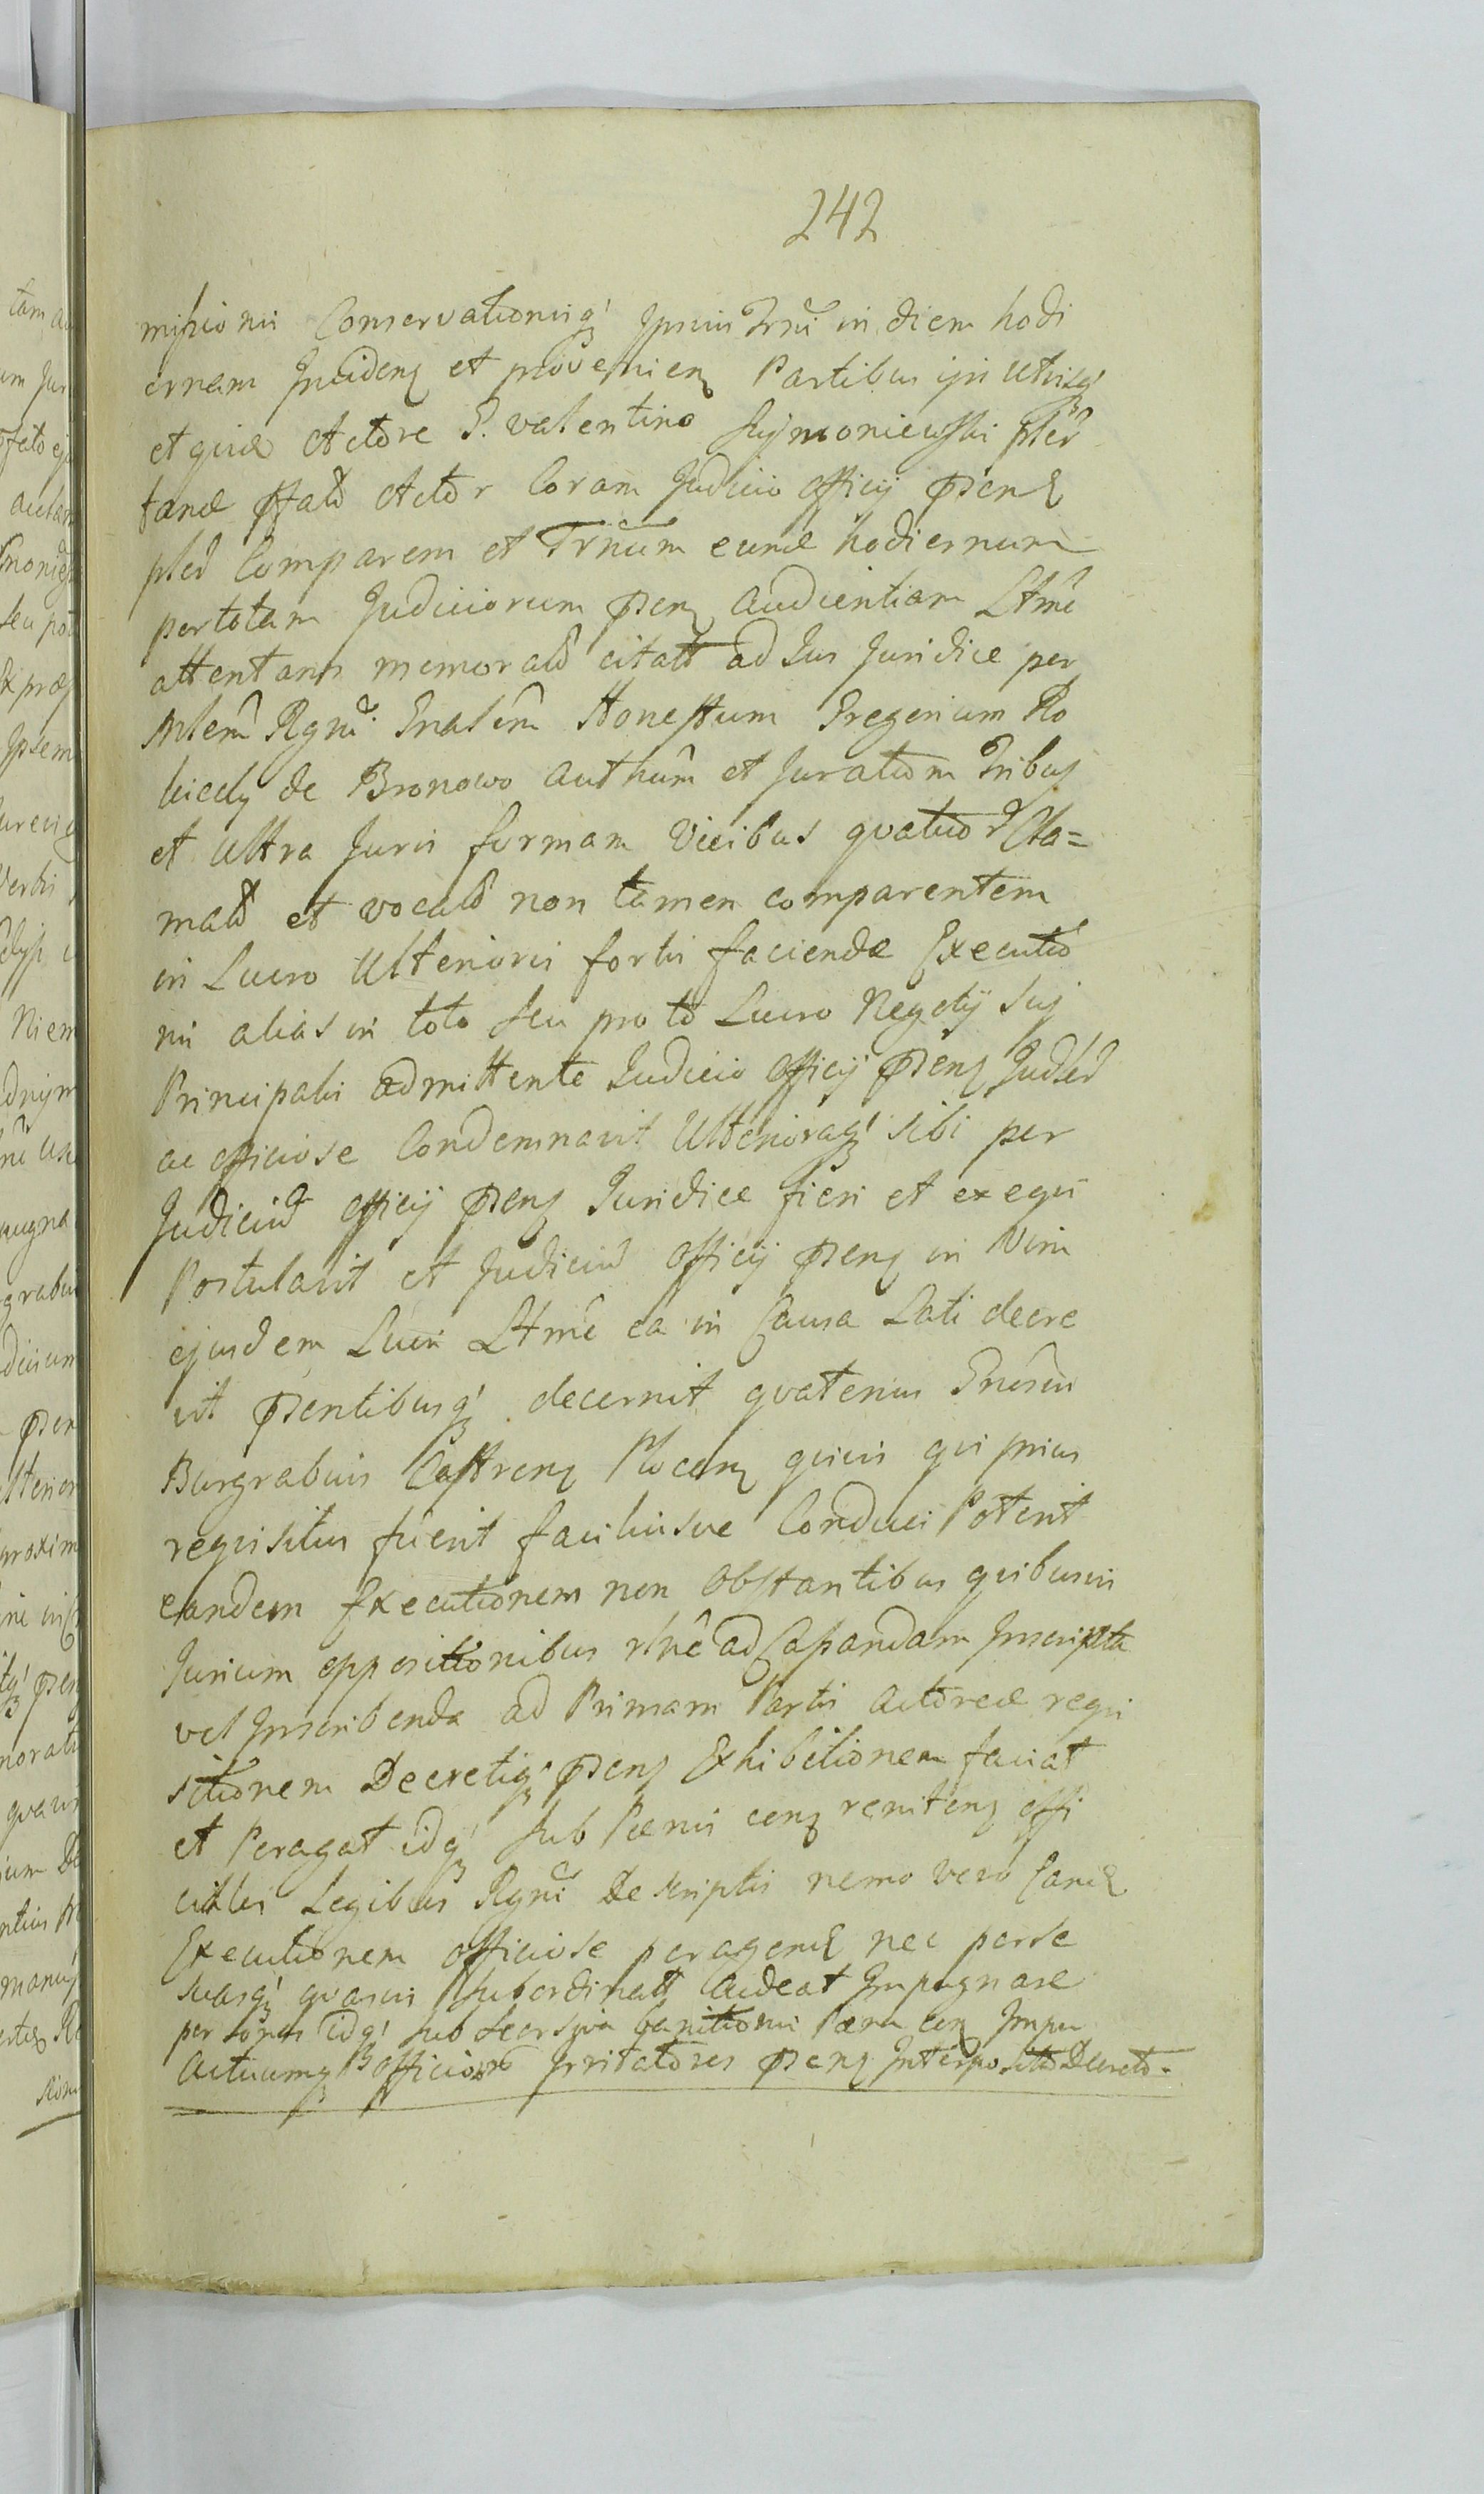 242
missionis Conservationisq; Ipsius Trni in diem hodi
ernam Inciden et provenien Partibus ijs Utrisq;
et quidem Actore P. Valentino Szymoniewski pler
tand pffato Actor Coram Judicio officij psenti
pler Comparem et Trnum eund hodiernum
per totam Judiciorum psen audientiam Lttme
attentans memorato citatt ad Jus Juridice per
Mlem Rgni Gnalem Honestum Gregorium Ro
biedy de Bronowo authum et Juratum Tribus
et ultra Juris formam Vicibus quatuor Cla=
mato et vocato non tamen comparentem
in Lucro Ulterioris fortis faciendæ Executio
nis alias in toto seu pro to Lucro Negotij sui
Principalis admittente Judicio Officij psen Judler
ac officiose Condemnavit Ulterioraq; sibi per
Judicium officij psen Juridice fieri et exequi
Postulavit et Judicium Officij psen in Vim
ejusdem Lucri Lttme ea in Causa Lati decre
vit psentibusq; decernit quatenus Gnosus
Burgrabius Castren Plocen quivis qui prius
requisitus fuerit faciliusve Conduci Poterit
eandem Executionem non Obstantibus quibusvis
Jurium oppositionibus rlne ad Capandam Inscripta
vel Inscribenda ad Primam Partis actoreæ requi
sitionem Decretiq; psen Exhibitionem faciat
et Peragat idq; Sub Pænis cen reniten offi
cialis Legibus Rgni Descriptis nemo vero Eand
Executionem officiose peragend nec per se
suasq; quasvis Subordinatt audeat Impugnare
personas idq; sub banitionis Pæna cen Impu
Actuumq; officioso Irritatores psen Interposito Decreto.